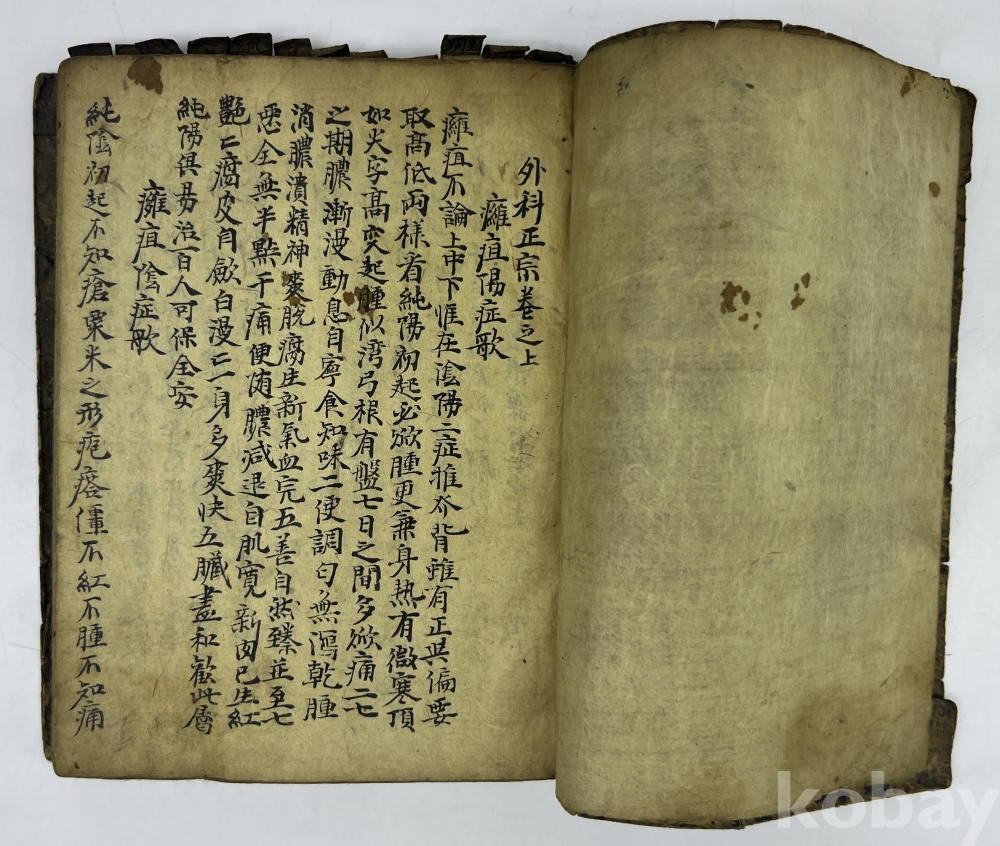 外科正宗卷之上
癰疽陽症歌
癰疽不論上中下惟在陰陽二症推亦背雖有正與偏要
取高低兩樣看純陽初起必焮腫更兼身热有微寒頂
如火字高突起腫似湾弓根有盤七日之間多焮痛二七
之期膿漸漫動息自寧食知味二便調勻無瀉乾腫
消膿潰精神爽脫腐生新氣血完五善自然臻並至七
惡全無半點干痛便随膿减退自肌寬新肉已生紅
艶〻腐皮自歛白漫〻一身多爽快五臟盡和歡此屬
純陽俱易治百人可保全安
癰疽陰症歌
純陰初起不知瘡粟米之形疱瘩僵不紅不腫不知痛
kobay